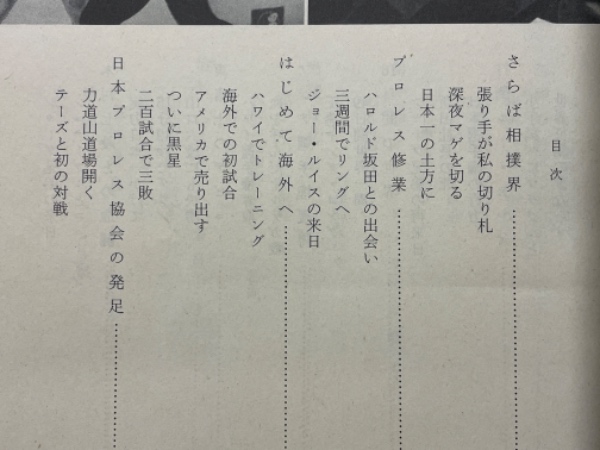 目次
さらば相撲界
張り手が私の切り札
深夜マゲを切る
日本一の土方に
プロレス修業
ハロルド坂田との出会い
三週間でリングへ
ジョー・ルイスの来日
はじめて海外へ
ハワイでトレーニング
海外での初試合
アメリカで売り出す
ついに黒星
二百試合で三敗
日本プロレス協会の発足
力道山道場開く
テーズと初の対戦